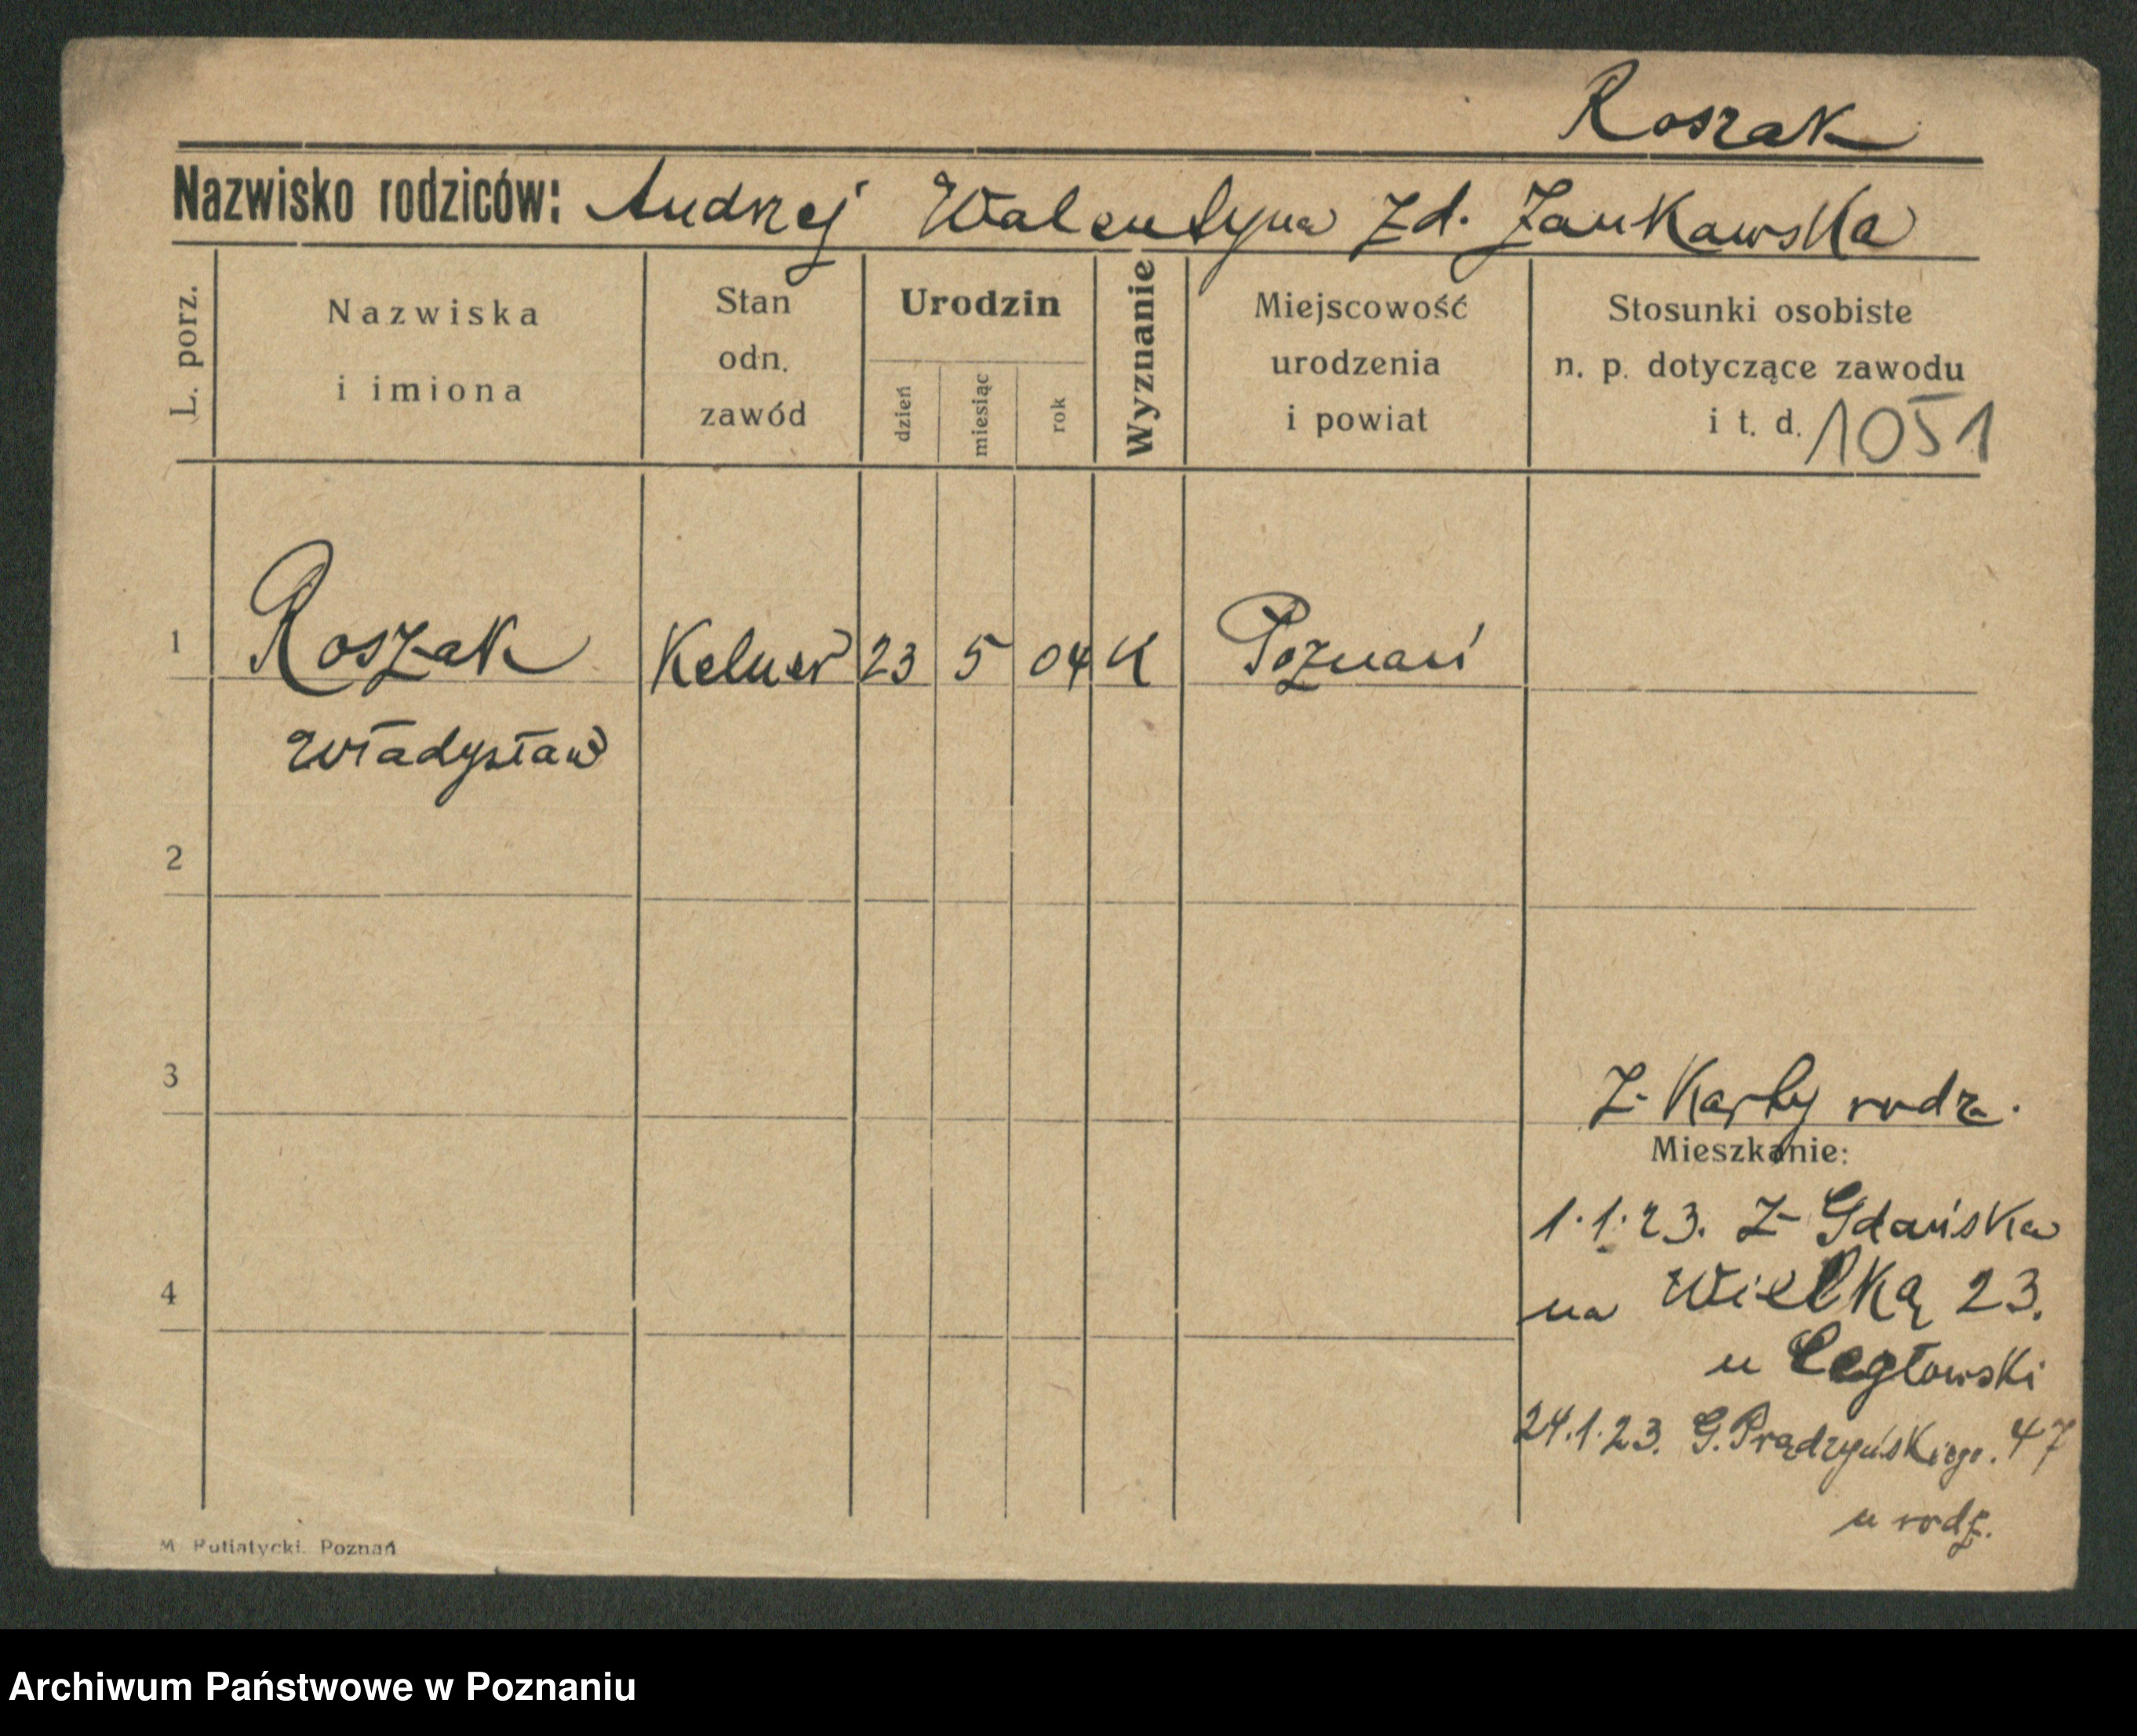 Roszak
Nazwisko rodziców: Andrzej Walentyna zd. Jankowska
L. porz.
Nazwiska
i imiona
Stan
odn.
zawód
Urodzin
dzień
miesiąc
rok
Wyznanie
Miejscowość
urodzenia
i powiat
Stosunki osobiste
n. p. dotyczące zawodu
i t. d. 1051
1 Roszak Kelner 23 5 04 K Poznań
Władysław
2
3
Z Karty rodz.
Mieszkanie:
1.1.23. Z Gdańska
4
na Wielką 23.
u Cegłowski
24.1.23. G. Prądzyńskiego. 47
u rodz.
M. Putiatycki. Poznań
Archiwum Państwowe w Poznaniu